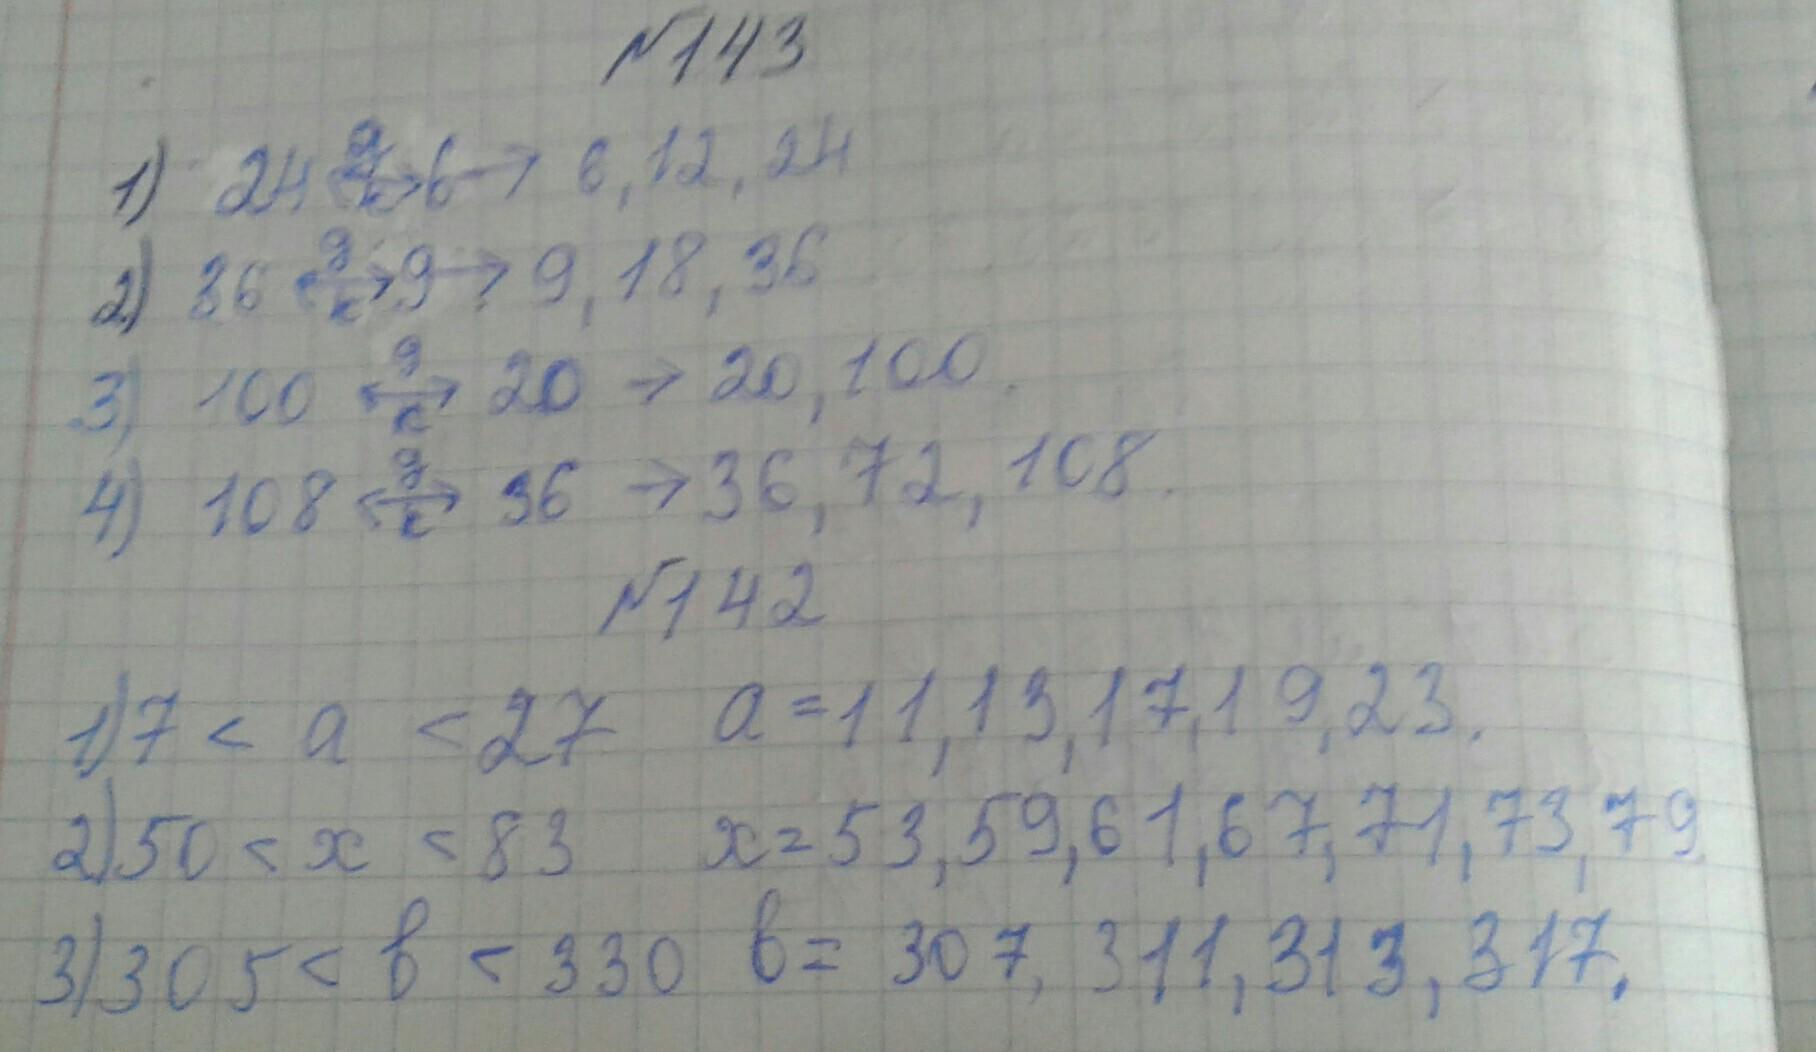 №143
1) 24 д/к ↔ 6 → 6, 12, 24
2) 36 д/к ↔ 9 → 9, 18, 36
3) 100 д/к ↔ 20 → 20, 100.
4) 108 д/к ↔ 36 → 36, 72, 108.
№142
1) 7 < a < 27 a = 11, 13, 17, 19, 23.
2) 50 < x < 83 x = 53, 59, 61, 67, 71, 73, 79
3) 305 < b < 330 b = 307, 311, 313, 317.